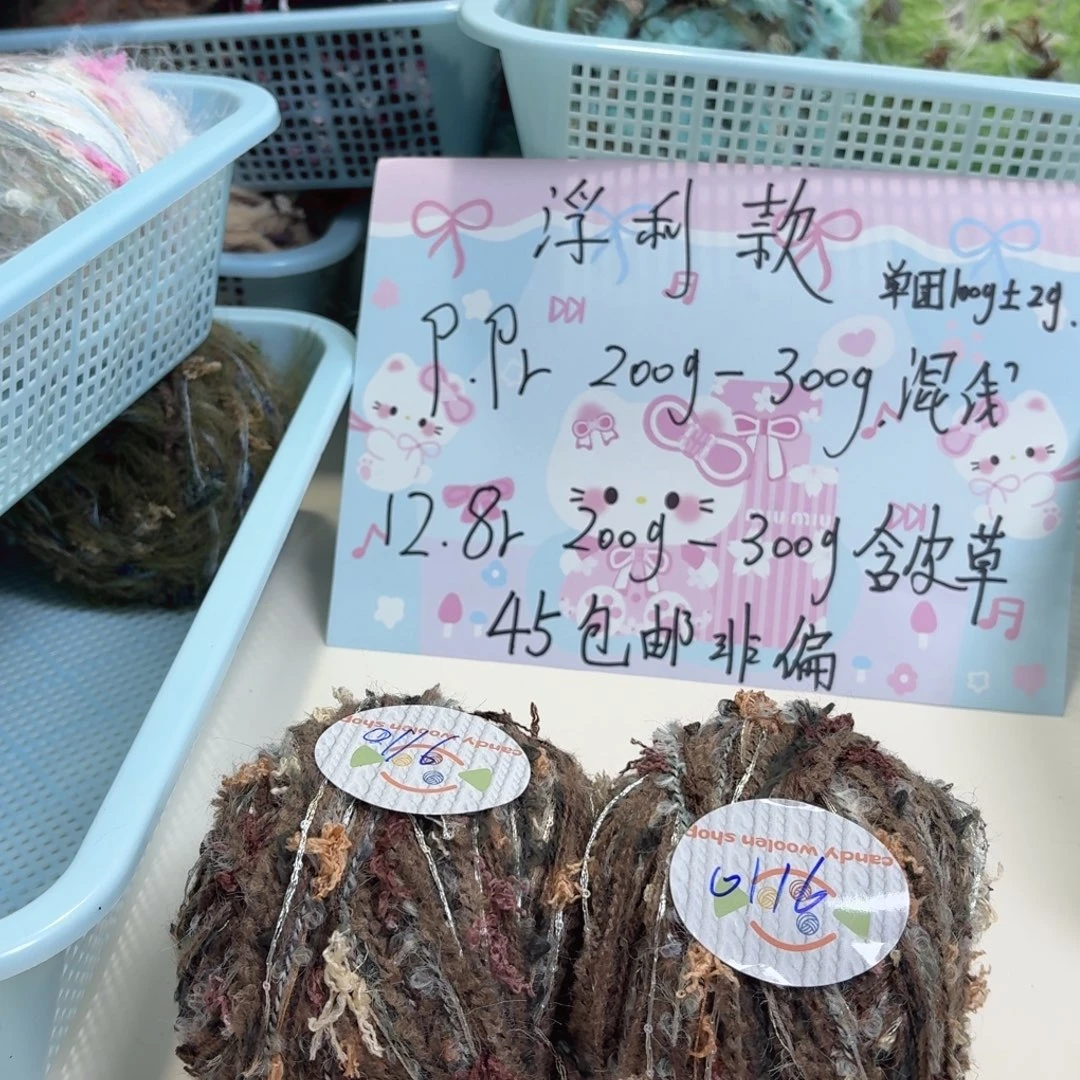 浮利款
单团100g±2g.
9.9r 200g-300g 混浅
12.8r 200g-300g 含皮草
45包邮非偏
candy woolen shop
0116
candy woolen shop
0116